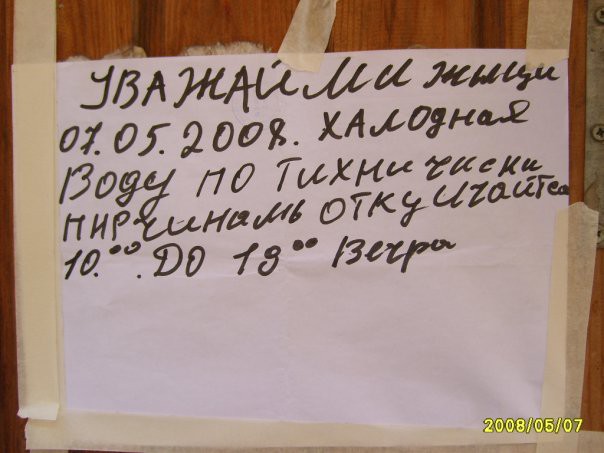 УВАЖАЙМИ жыци
07.05.2008. ХАЛОДНАЯ
Воду по Тихничиски
пирчинамь откуичайтся
10.⁰⁰. ДО 19⁰⁰ Вечра
2008/05/07